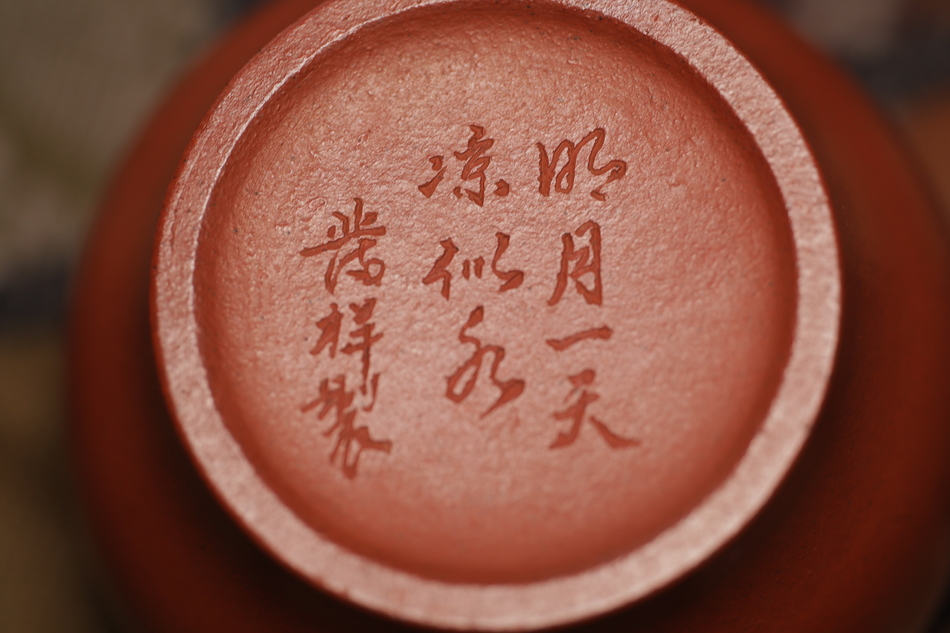 明月一天
凉似水
祥製